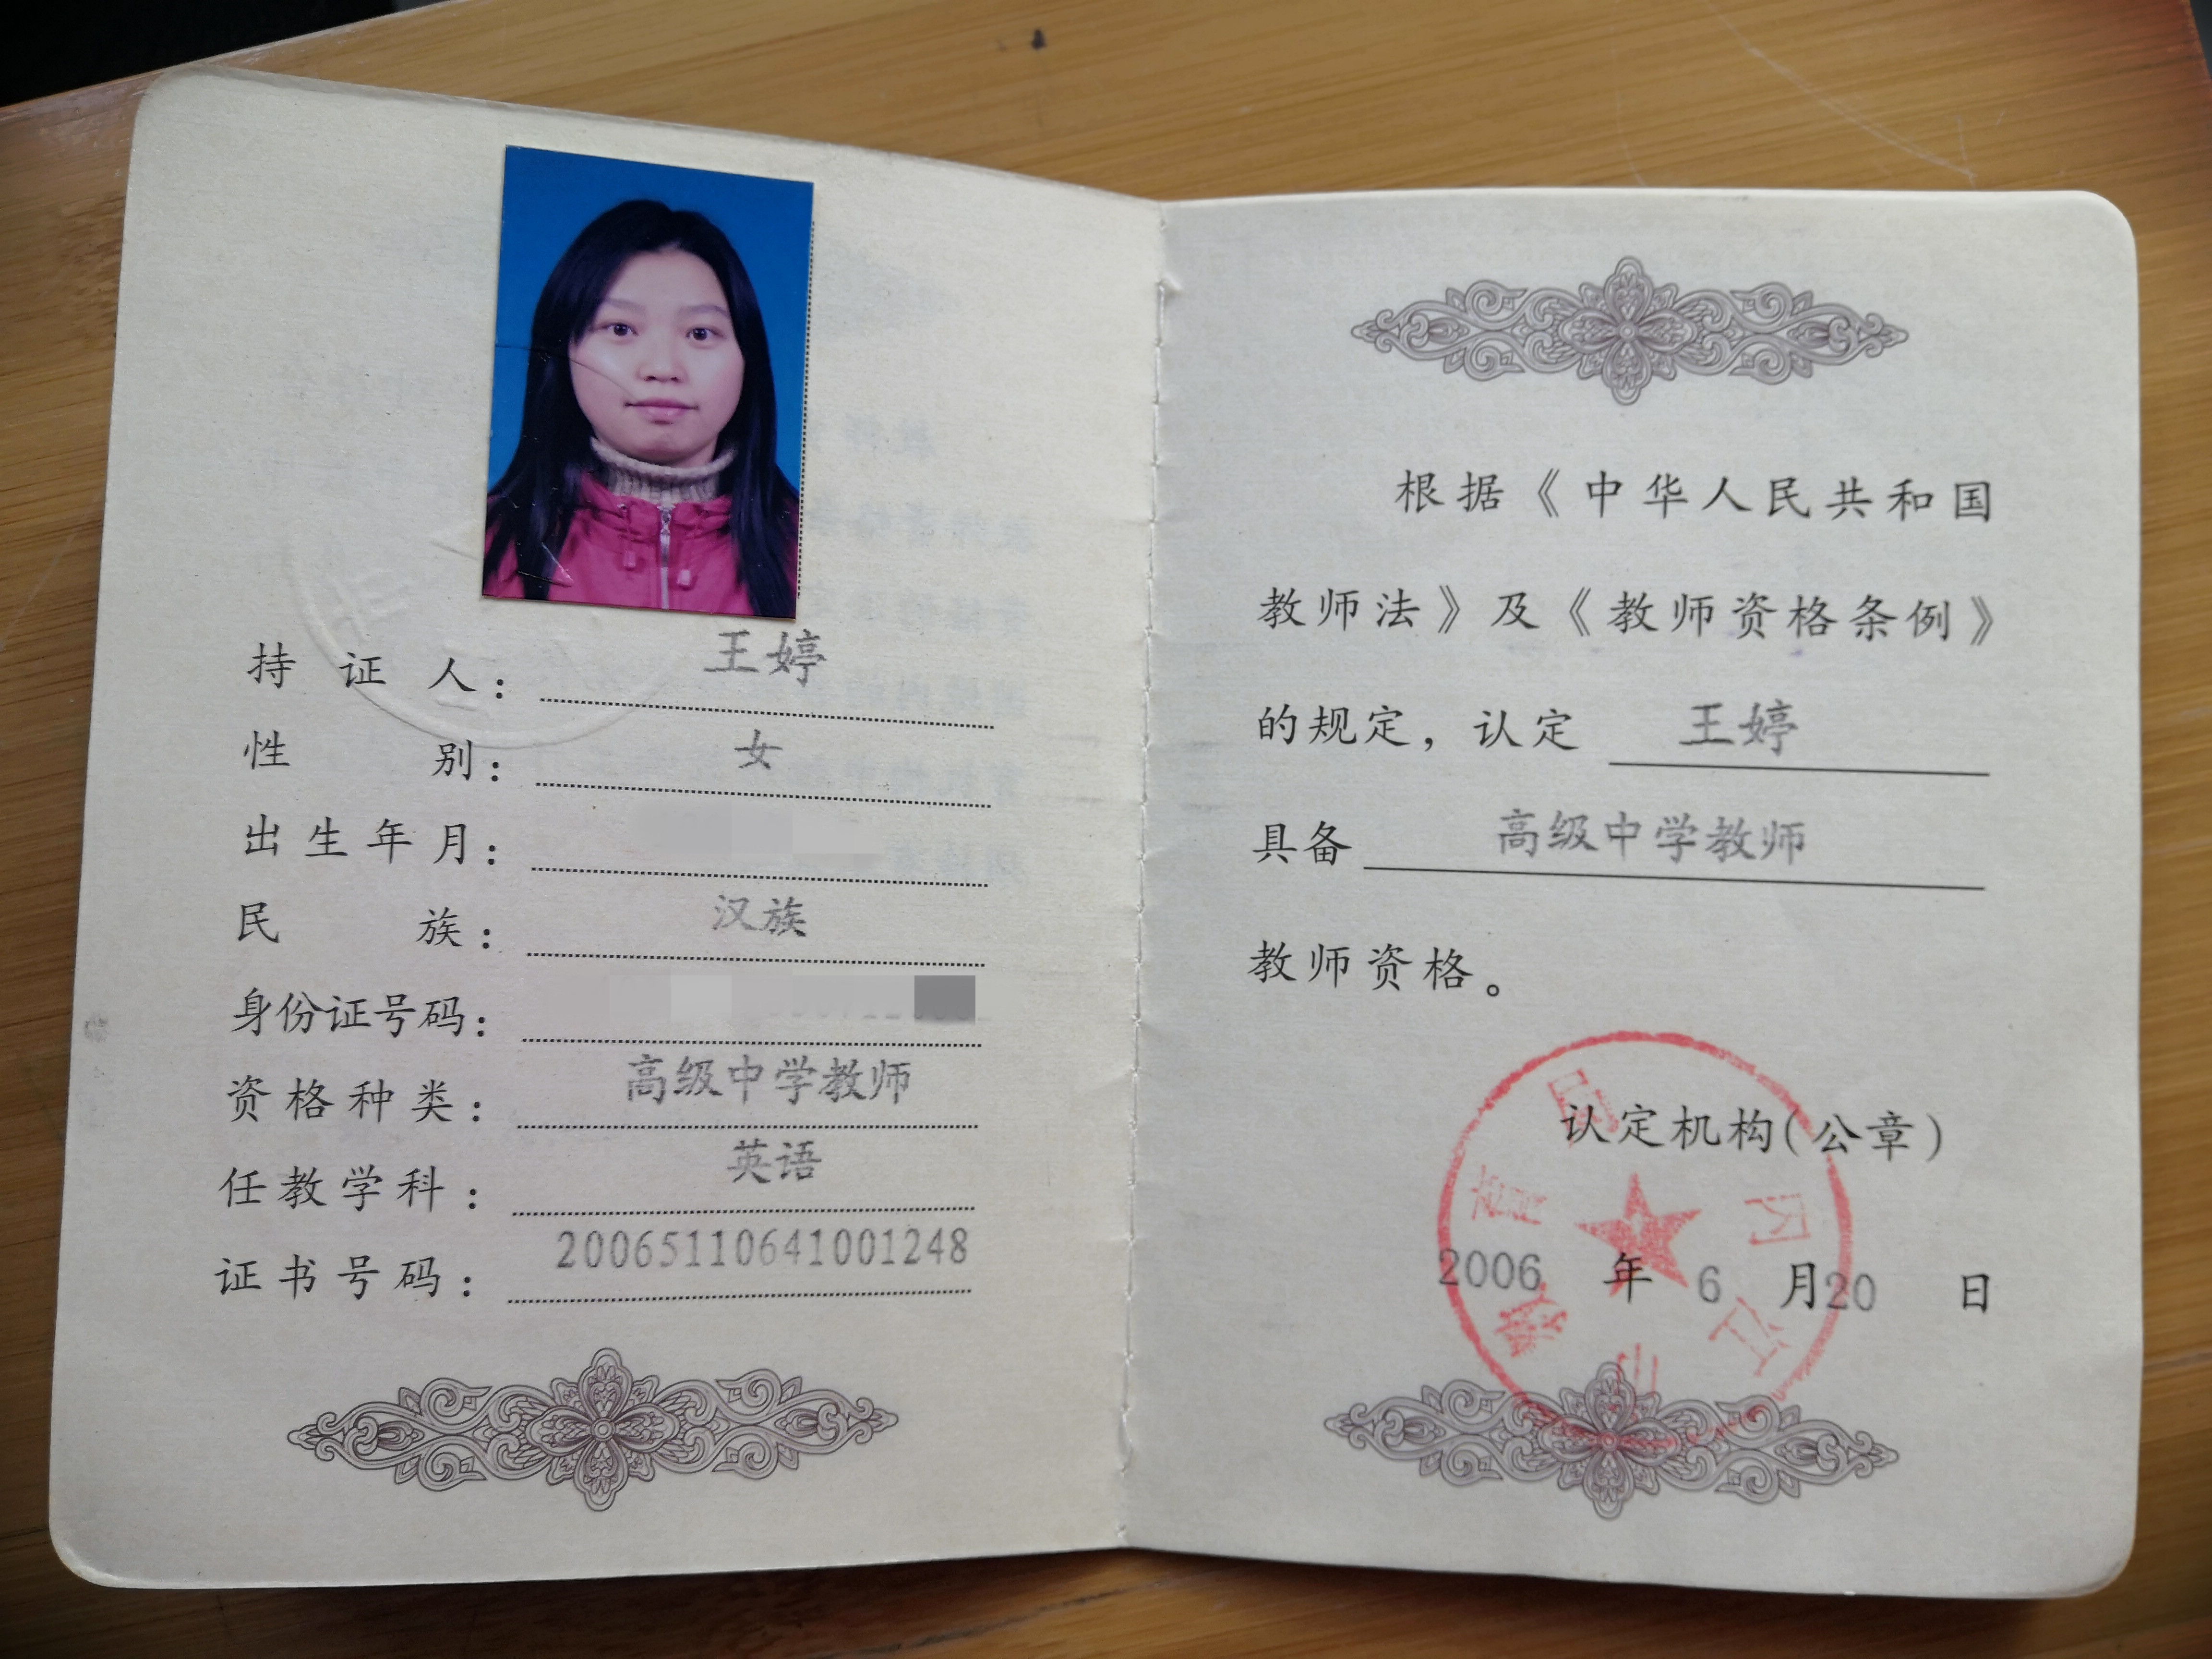 持证人：王婷
性别：女
出生年月：
民族：汉族
身份证号码：
资格种类：高级中学教师
任教学科：英语
证书号码：20065110641001248
根据《中华人民共和国
教师法》及《教师资格条例》
的规定，认定 王婷
具备 高级中学教师
教师资格。
认定机构(公章)
2006 年 6 月 20 日